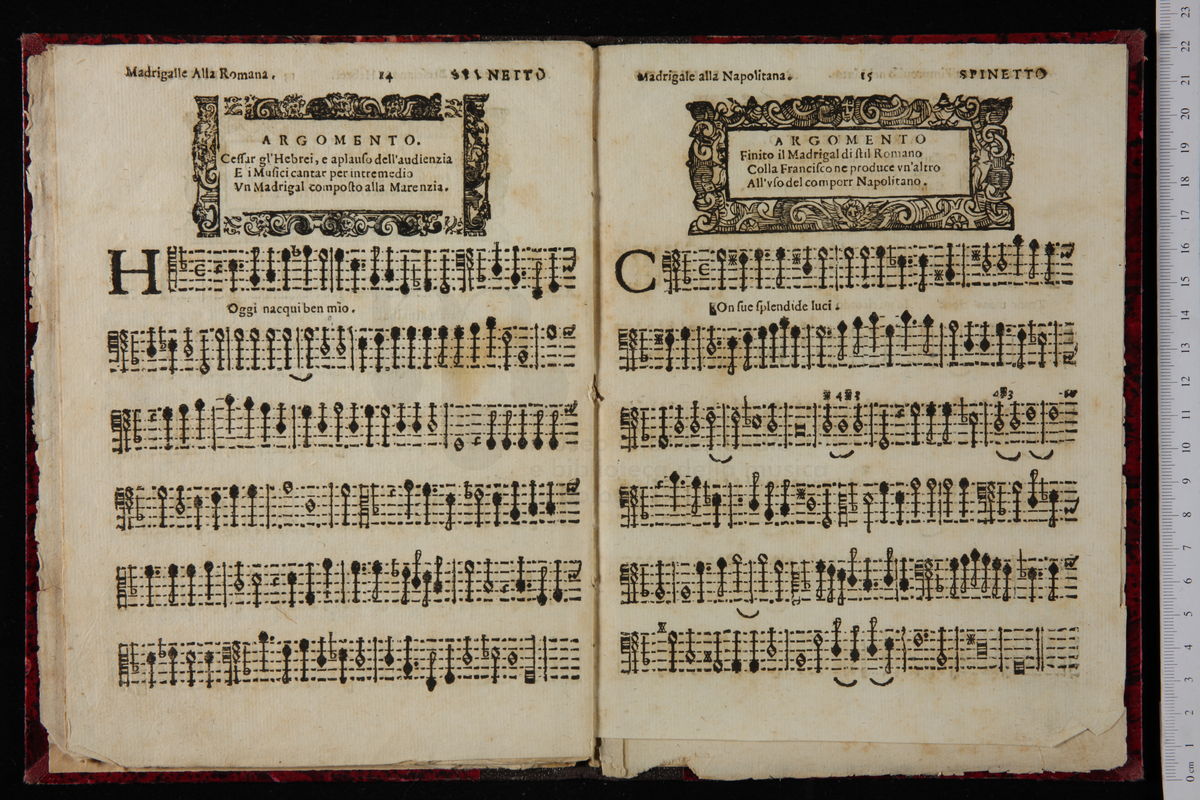 Madrigalle Alla Romana. 14 SPINETTO
ARGOMENTO.
Cessar gl'Hebrei, e aplauso dell'audienzia
E i Musici cantar per intremedio
Vn Madrigal composto alla Marenzia.
H
Oggi nacqui ben mio.
Madrigale alla Napolitana. 15 SPINETTO
ARGOMENTO
Finito il Madrigal di stil Romano
Colla Francisco ne produce vn'altro
All'vso del comporr Napolitano.
C
On sue splendide luci.
4 3
4 3